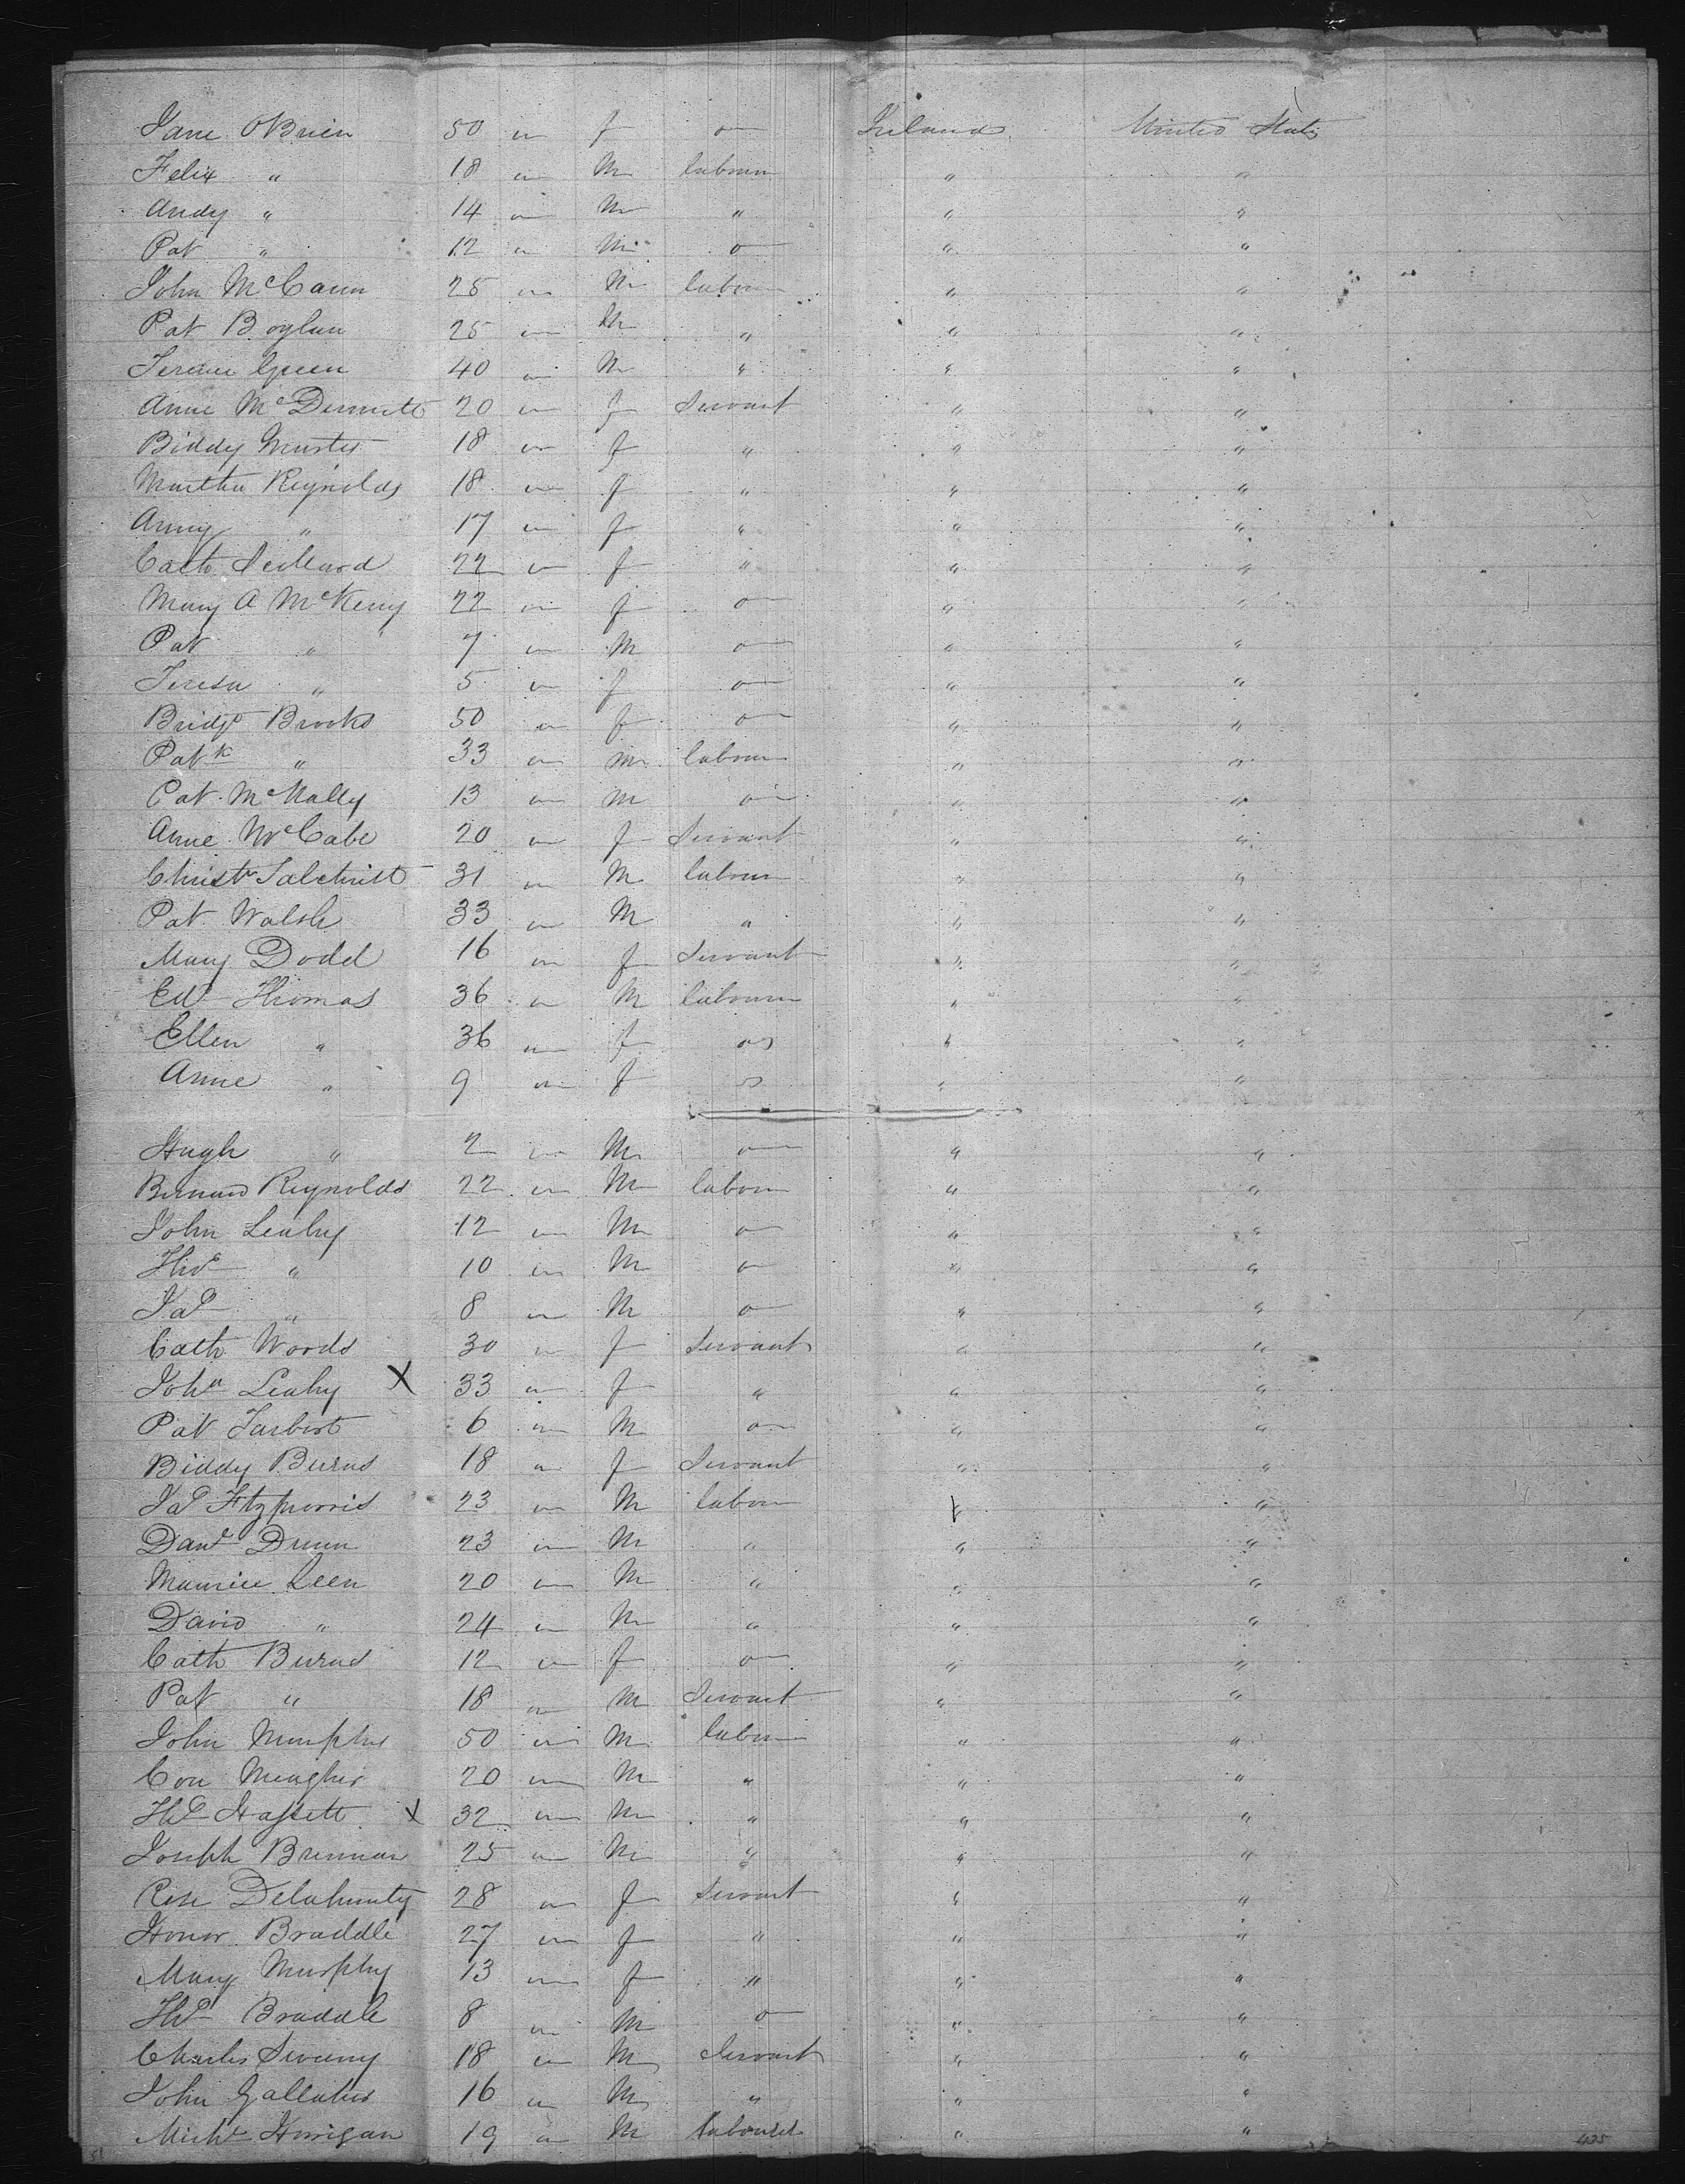 Jane OBrien 50 — f o— Ireland United States
Felix " 18 — M labourer " "
Andy " 14 — M " " "
Pat " 12 — M o— " "
John McCann 25 — M labourer " "
Pat Boylan 25 — M " " "
Terence Green 40 — M " " "
Anne McDermott 20 — f Servant " "
Biddy 18 — f " " "
Martha Reynolds 18 — f " " "
Anny " 17 — f " " "
Cath 22 — f " " "
Mary A McKenny 22 — f o— " "
Pat " 7 — M o— " "
Teresa " 5 — f o— " "
Bridgt Brooks 50 — f o— " "
Patk " 33 — M labourer " "
Pat McNally 13 — M o— " "
Anne McCabe 20 — f Servant " "
Christr 31 — M labourer " "
Pat Walsh 33 — M " " "
Mary Dodd 16 — f Servant " "
Edd Thomas 36 — M labourer " "
Ellen " 36 — f o— " "
Anne " 9 — f o— " "
Hugh " 2 — M o— " "
Bernard Reynolds 22 — M labourer " "
John Leahy 12 — M o— " "
Thos " 10 — M o— " "
Jas " 8 — M o— " "
Cath Woods 30 — f Servant " "
Joha Leahy X 33 — f " " "
Pat Tarbert 6 — M o— " "
Biddy Burns 18 — f Servant " "
Jas Fitzmorris 23 — M labourer " "
Danl Dunn 23 — M " " "
Maurice Leen 20 — M " " "
David " 24 — M " " "
Cath Burns 12 — f o— " "
Pat " 18 — M Servant " "
John Murphy 50 — M labourer " "
Con Meagher 20 — M " " "
Thos Hassett X 32 — M " " "
Joseph Brennan 25 — M " " "
Rose Delahunty 28 — f Servant " "
Honor Braddle 27 — f " " "
Mary Murphy 13 — f " " "
Thos Braddle 8 — M o— " "
Charles Sweeny 18 — M Servant " "
John Gallaher 16 — M " " "
Michl Horrigan 19 — M labourer " "
51 435